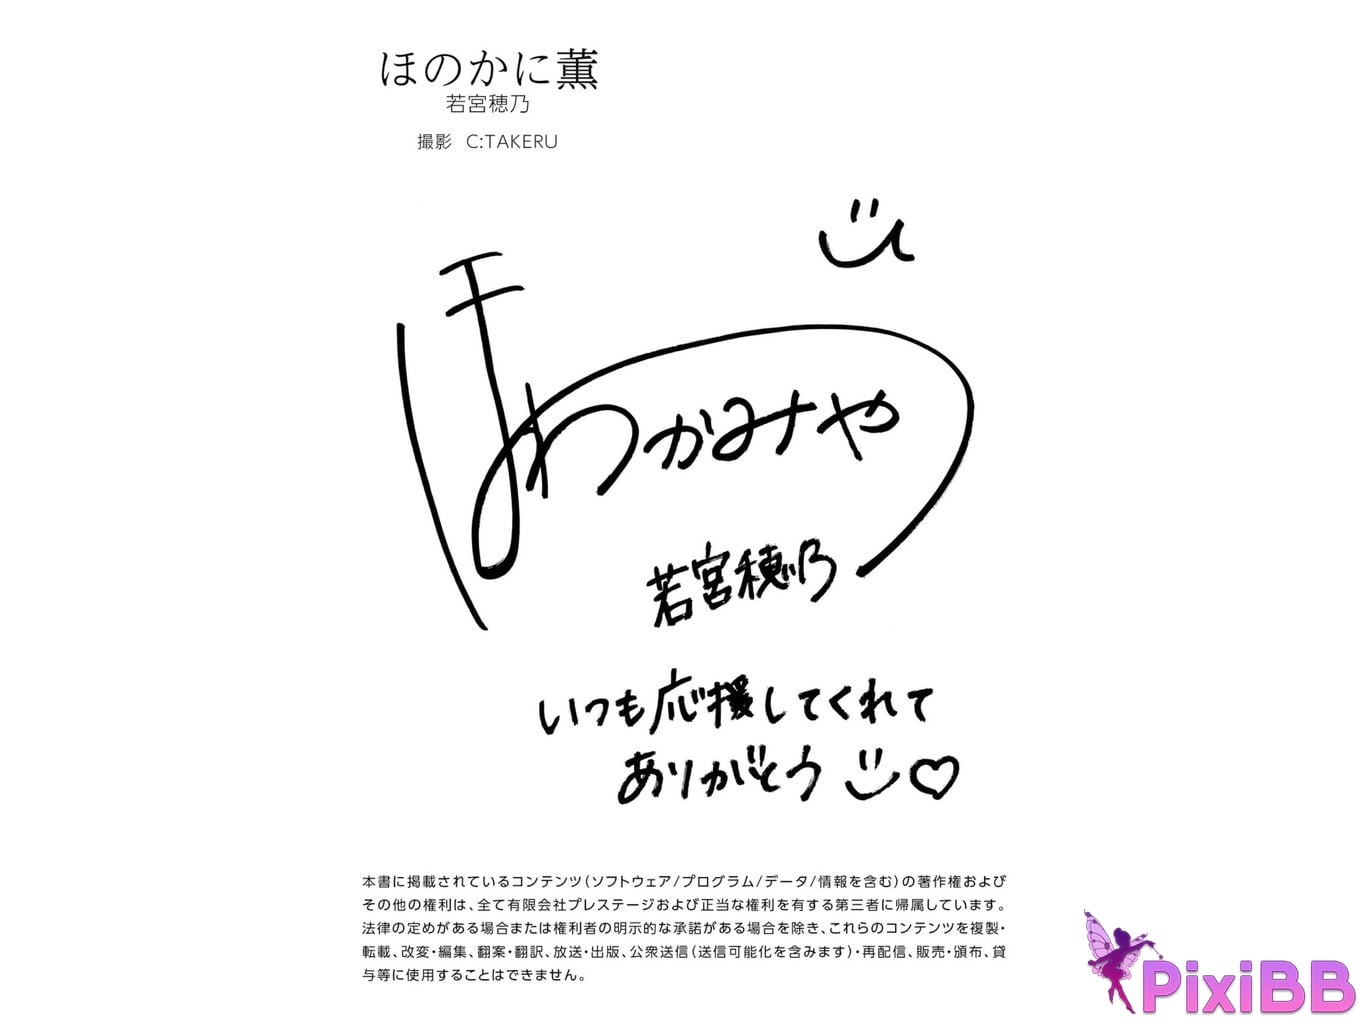 ほのかに薫
若宮穂乃
撮影 C:TAKERU
ほ
わかみや
若宮穂乃
いつも応援してくれて
ありがとう
本書に掲載されているコンテンツ(ソフトウェア/プログラム/データ/情報を含む)の著作権および
その他の権利は、全て有限会社プレステージおよび正当な権利を有する第三者に帰属しています。
法律の定めがある場合または権利者の明示的な承諾がある場合を除き、これらのコンテンツを複製・
転載、改変・編集、翻案・翻訳、放送・出版、公衆送信(送信可能化を含みます)・再配信、販売・頒布、貸
与等に使用することはできません。
PixiBB